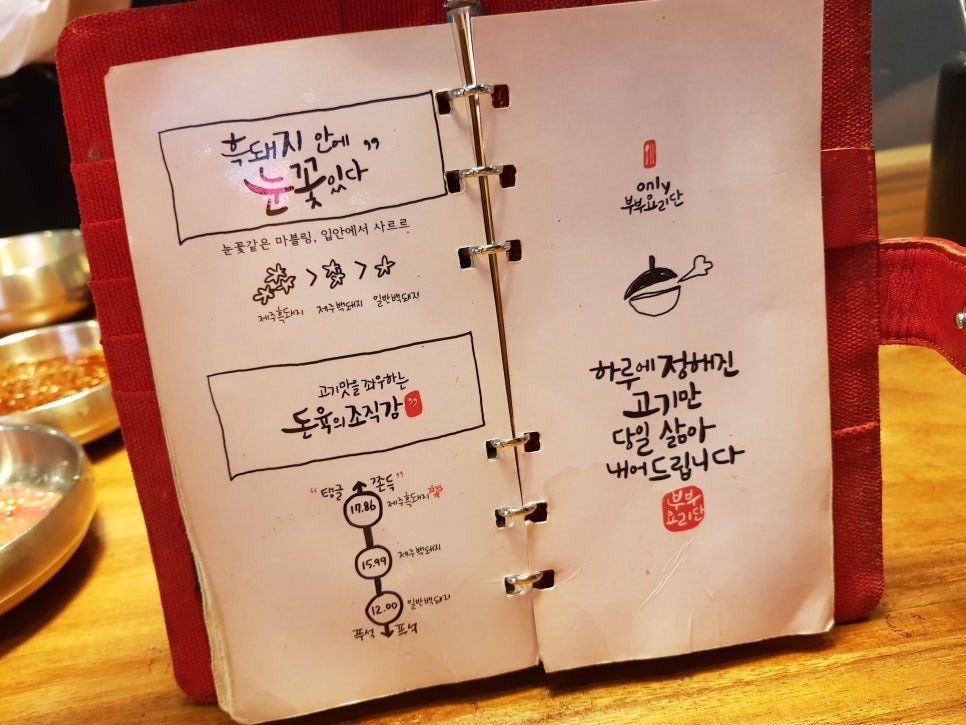 흑돼지 안에 ”
눈꽃있다
눈꽃같은 마블링, 입안에서 사르르
> >
제주흑돼지 제주백돼지 일반백돼지
고기맛을 좌우하는
돈육의 조직감 ”
“탱글 쫀득”
17.86 제주흑돼지
15.99 제주백돼지
12.00 일반백돼지
푸석 푸석
only
부부요리단
하루에 정해진
고기만
당일 삶아
내어드립니다
부부
요리단